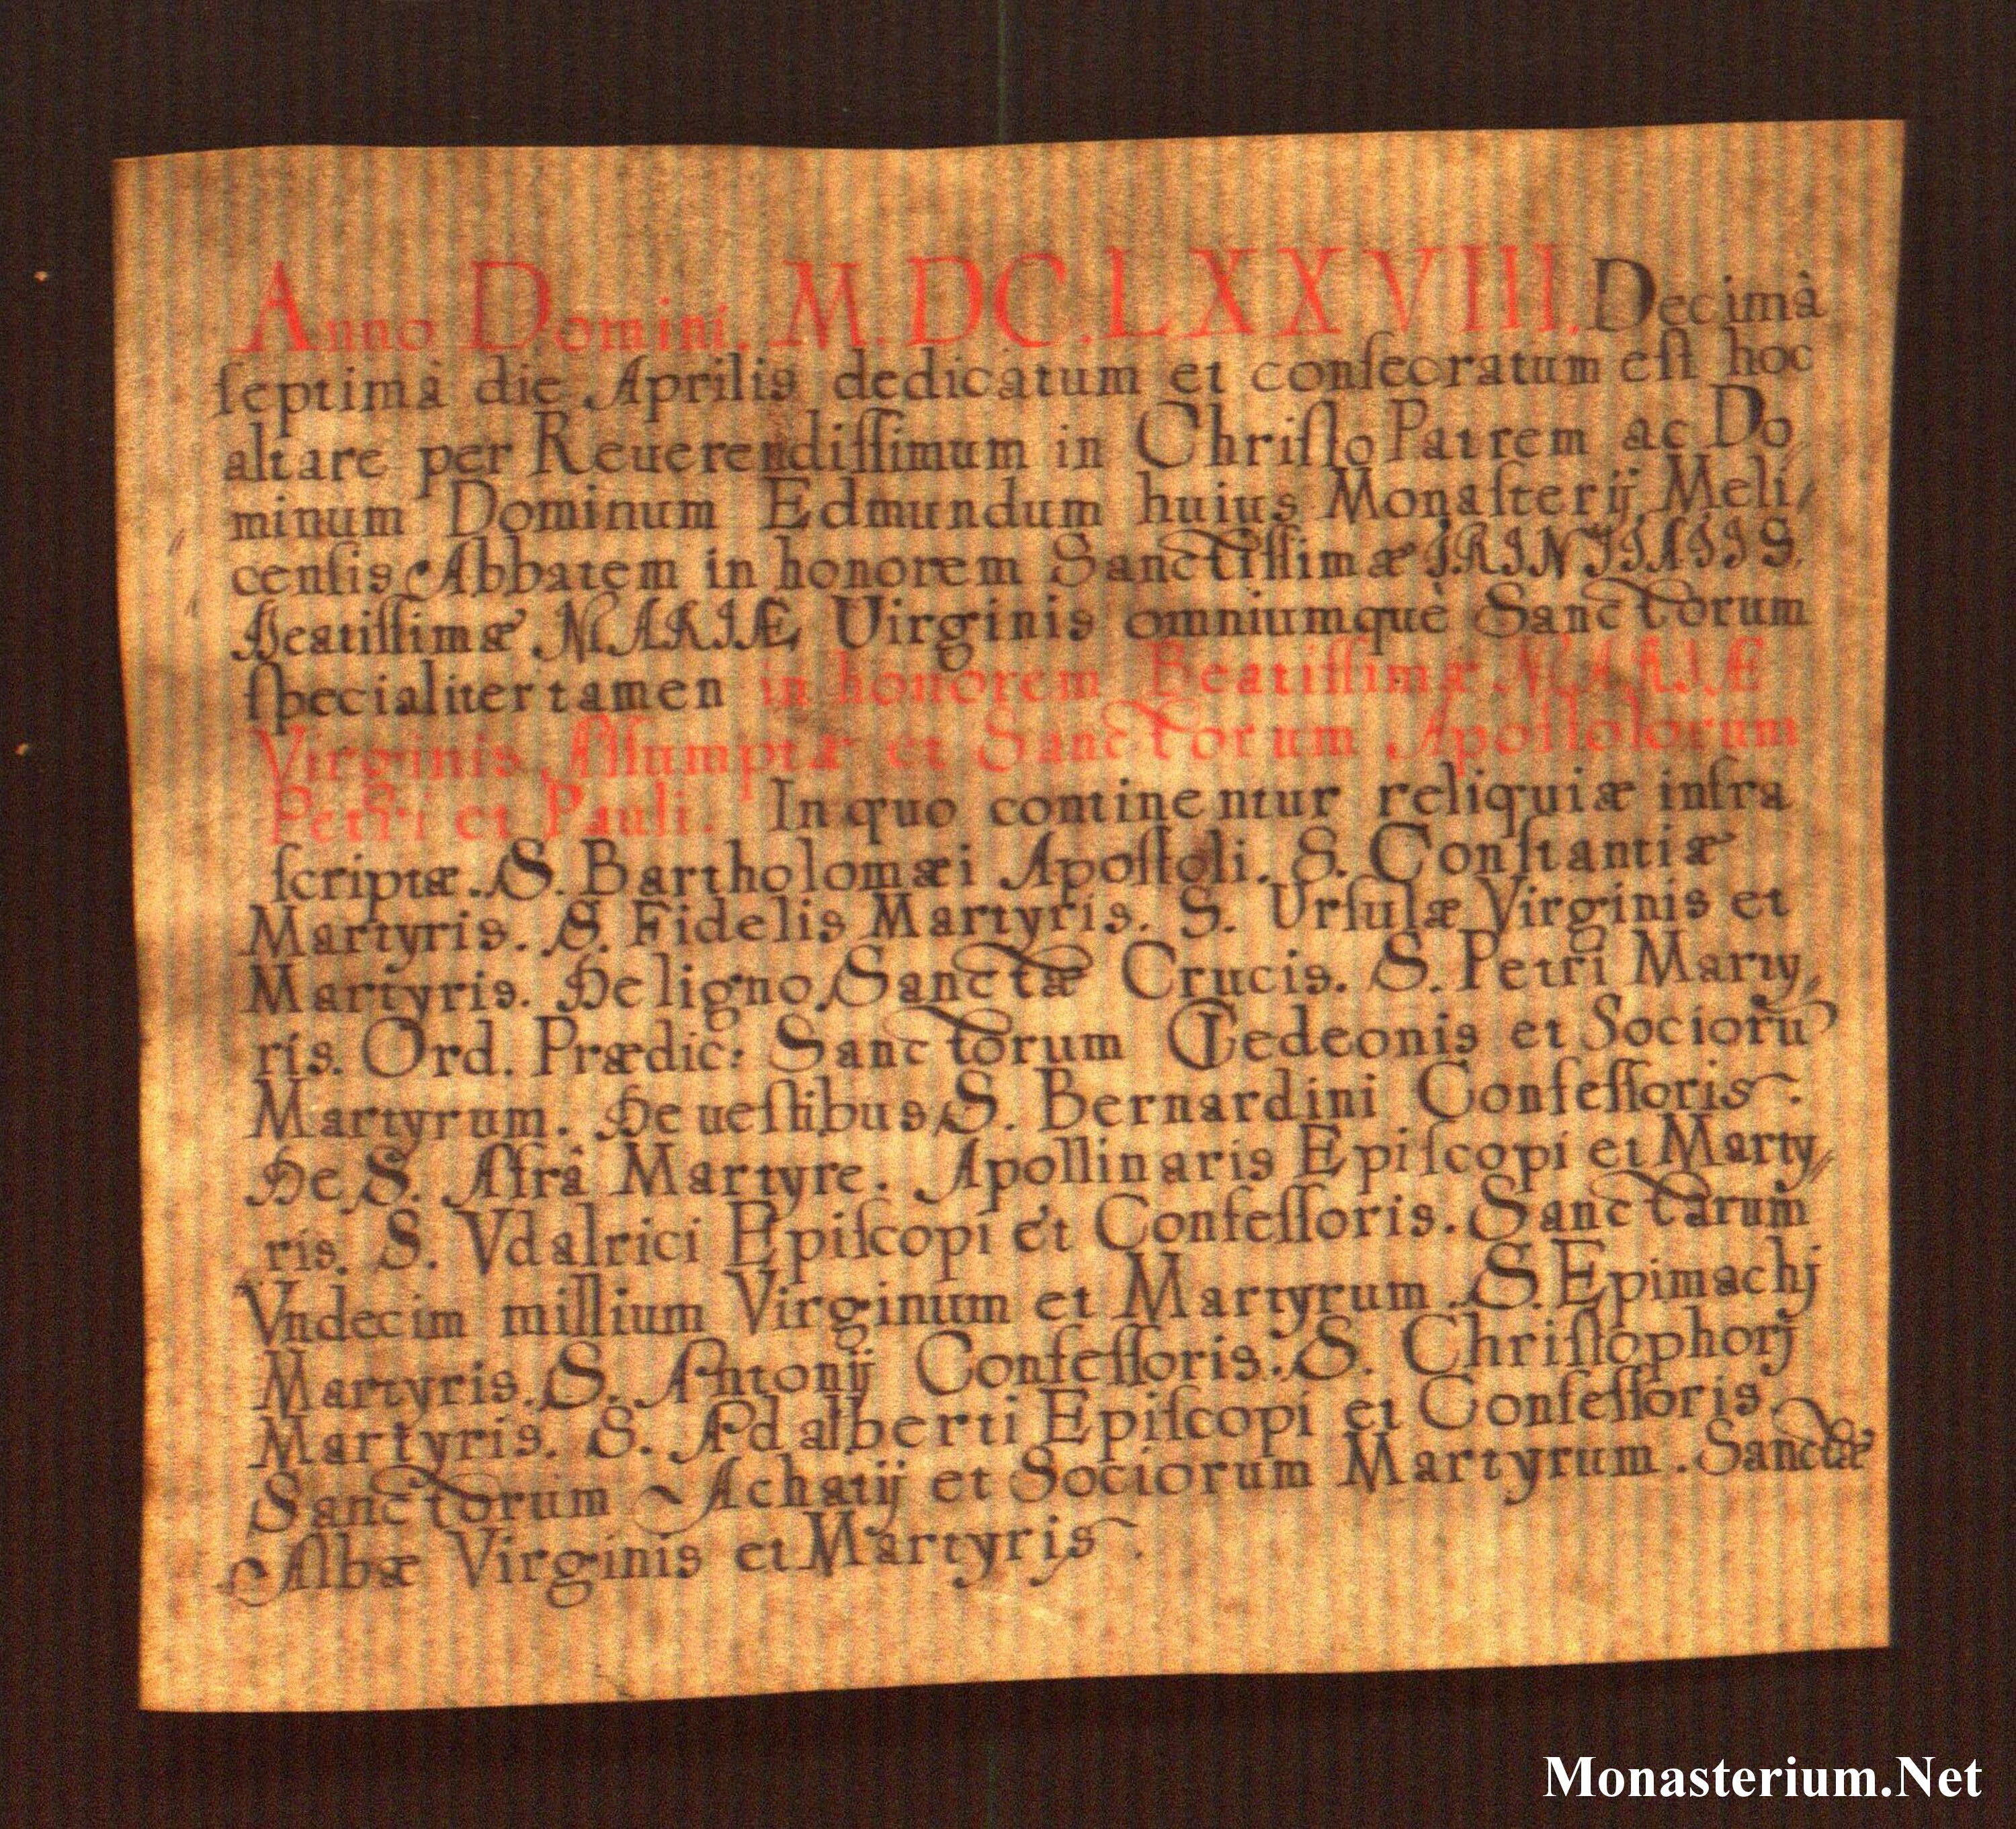 Anno Domini. M.DC.LXXVIII. Decimà
ſeptimâ die Aprilis dedicatum et conſecratum eſt hoc
altare per Reuerendiſſimum in Chriſto Patrem ac Do
minum Dominum Edmundum huius Monaſterij Meli,
cenſis Abbatem in honorem Sanctiſſimæ TRINITATIS
Beatiſſimæ MARIÆ Uirginis omniumque Sanctorum
ſpecialiter tamen in honorem Beatiſſimæ MARIÆ
Virginis Aſſumptæ et Sanctorum Apoſtolorum
Petri et Pauli. In quo continentur reliquiæ infra
ſcriptæ. S. Bartholomæi Apoſtoli. S. Conſtantiæ
Martyris. S. Fidelis Martyris. S. Urſulæ Virginis et
Martyris. De ligno Sanctæ Crucis. S. Petri Marty,
ris. Ord. Prædic: Sanctorum Gedeonis et Socioru
Martyrum. De ueſtibus S. Bernardini Confeſſoris.
De S. Afrâ Martyre. Apollinaris Epiſcopi et Marty,
ris. S. Vdalrici Epiſcopi et Confeſſoris. Sanctarum
Vndecim millium Virginum et Martyrum. S. Epimachj
Martyris. S. Antonij Confeſſoris. S. Chriſtophorj
Martyris. S. Adalberti Epiſcopi et Confeſſoris.
Sanctorum Achatij et Sociorum Martyrum. Sanctæ
Albæ Virginis et Martyris.
Monasterium.Net